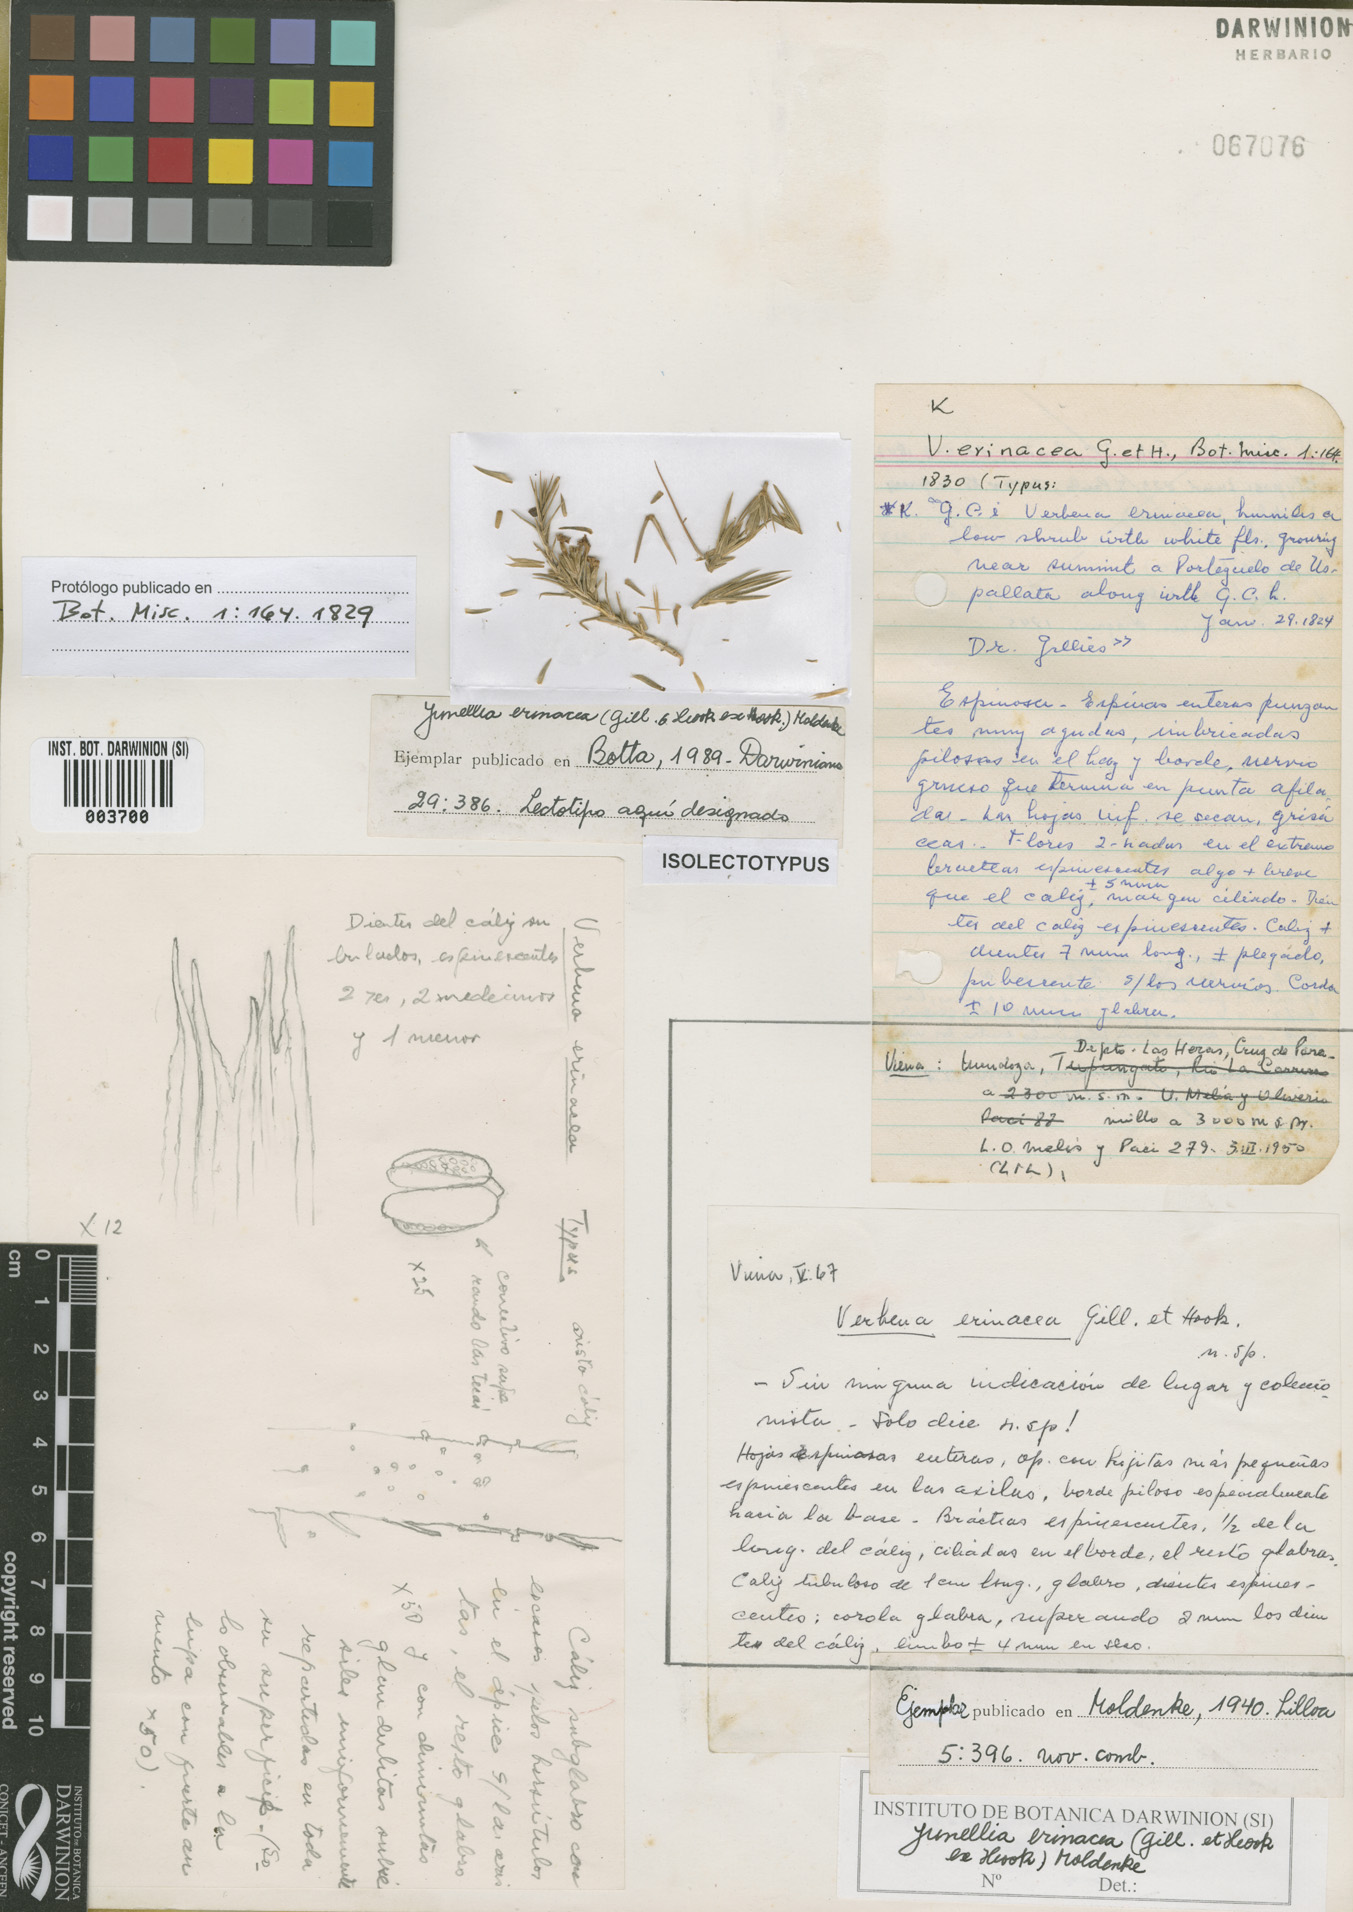 DARWINION
HERBARIO
067076
K
V. erinacea G. et H., Bot. Misc. 1:164.
1830 (Typus:
*K. "G.C. i Verbena erinacea, humilis a
low shrub with white fls., growing
near summit a Porteguelo de Us-
pallata along with G.C. h.
Jan. 29.1824
Dr. Gillies"
Espinosa - Espinas enteras punzan
tes muy agudas, imbricadas
pilosas en el haz y borde, nervio
grueso que termina en punta afila
da - Las hojas inf. se secan, grisá
ceas.- Flores 2-nadas en el extremo
bracteas espinescentes algo + breve
que el caliz, ± 5 mm margen ciliado - Dien
tes del caliz espinescentes. Caliz +
dientes 7 mm long., ± plegado,
pubescente s/los nervios. Corola
± 10 mm glabra.
Depto. Las Heras, Cruz de Para-
Viena: Mendoza, Tupungato, Rio La Carrera
a 2300 m.s.m. U. Melis y Oliverio
Paci 88 millo a 3000 m s m.
L.O. Melis y Paci 279. 3.III.1950
(LIL),
Protólogo publicado en
Bot. Misc. 1:164. 1829
INST. BOT. DARWINION (SI)
003700
Junellia erinacea (Gill. & Hook ex Hook.) Moldenke
Ejemplar publicado en Botta, 1989-Darwiniana
29:386. Lectotipo aquí designado
ISOLECTOTYPUS
Dientes del cáliz su
bulados, espinescentes
2 res, 2 medianos
y 1 menor
X 12
Verbena erinacea Typus
arista cáliz
conectivo supe
rando las tecas
x 25
x 50
Cáliz subglabro con
escasos pelos hirsútulos
en el ápice s/las aris
tas, el resto glabro
y con diminutas
glandulitas subsé
siles uniformemente
repartidas en toda
su superficie. (So
lo observables a la
lupa con fuerte au
mento x 50).
Viena, V.67
Verbena erinacea Gill. et Hook.
n. sp.
- Sin ninguna indicación de lugar y coleccio
nista - Sólo dice n. sp!
Hojas espinosas enteras, op. con hijitas más pequeñas
espinescentes en las axilas, borde piloso especialmente
hacia la base - Brácteas espinescentes, 1/2 de la
long. del cáliz, ciliadas en el borde, el resto glabras.
Caliz tubuloso de 1 cm long., glabro, dientes espines-
centes; corola glabra, superando 2 mm los dien
tes del cáliz, limbo ± 4 mm en seco.
Ejemplar publicado en Moldenke, 1940. Lilloa
5:396. nov. comb.
INSTITUTO DE BOTANICA DARWINION (SI)
Junellia erinacea (Gill. et Hook
ex Hook) Moldenke
Nº Det.:
cm
0
1
2
3
4
5
6
7
8
9
10
copyright reserved
INSTITUTO DE BOTANICA
DARWINION
CONICET - ANCEFN